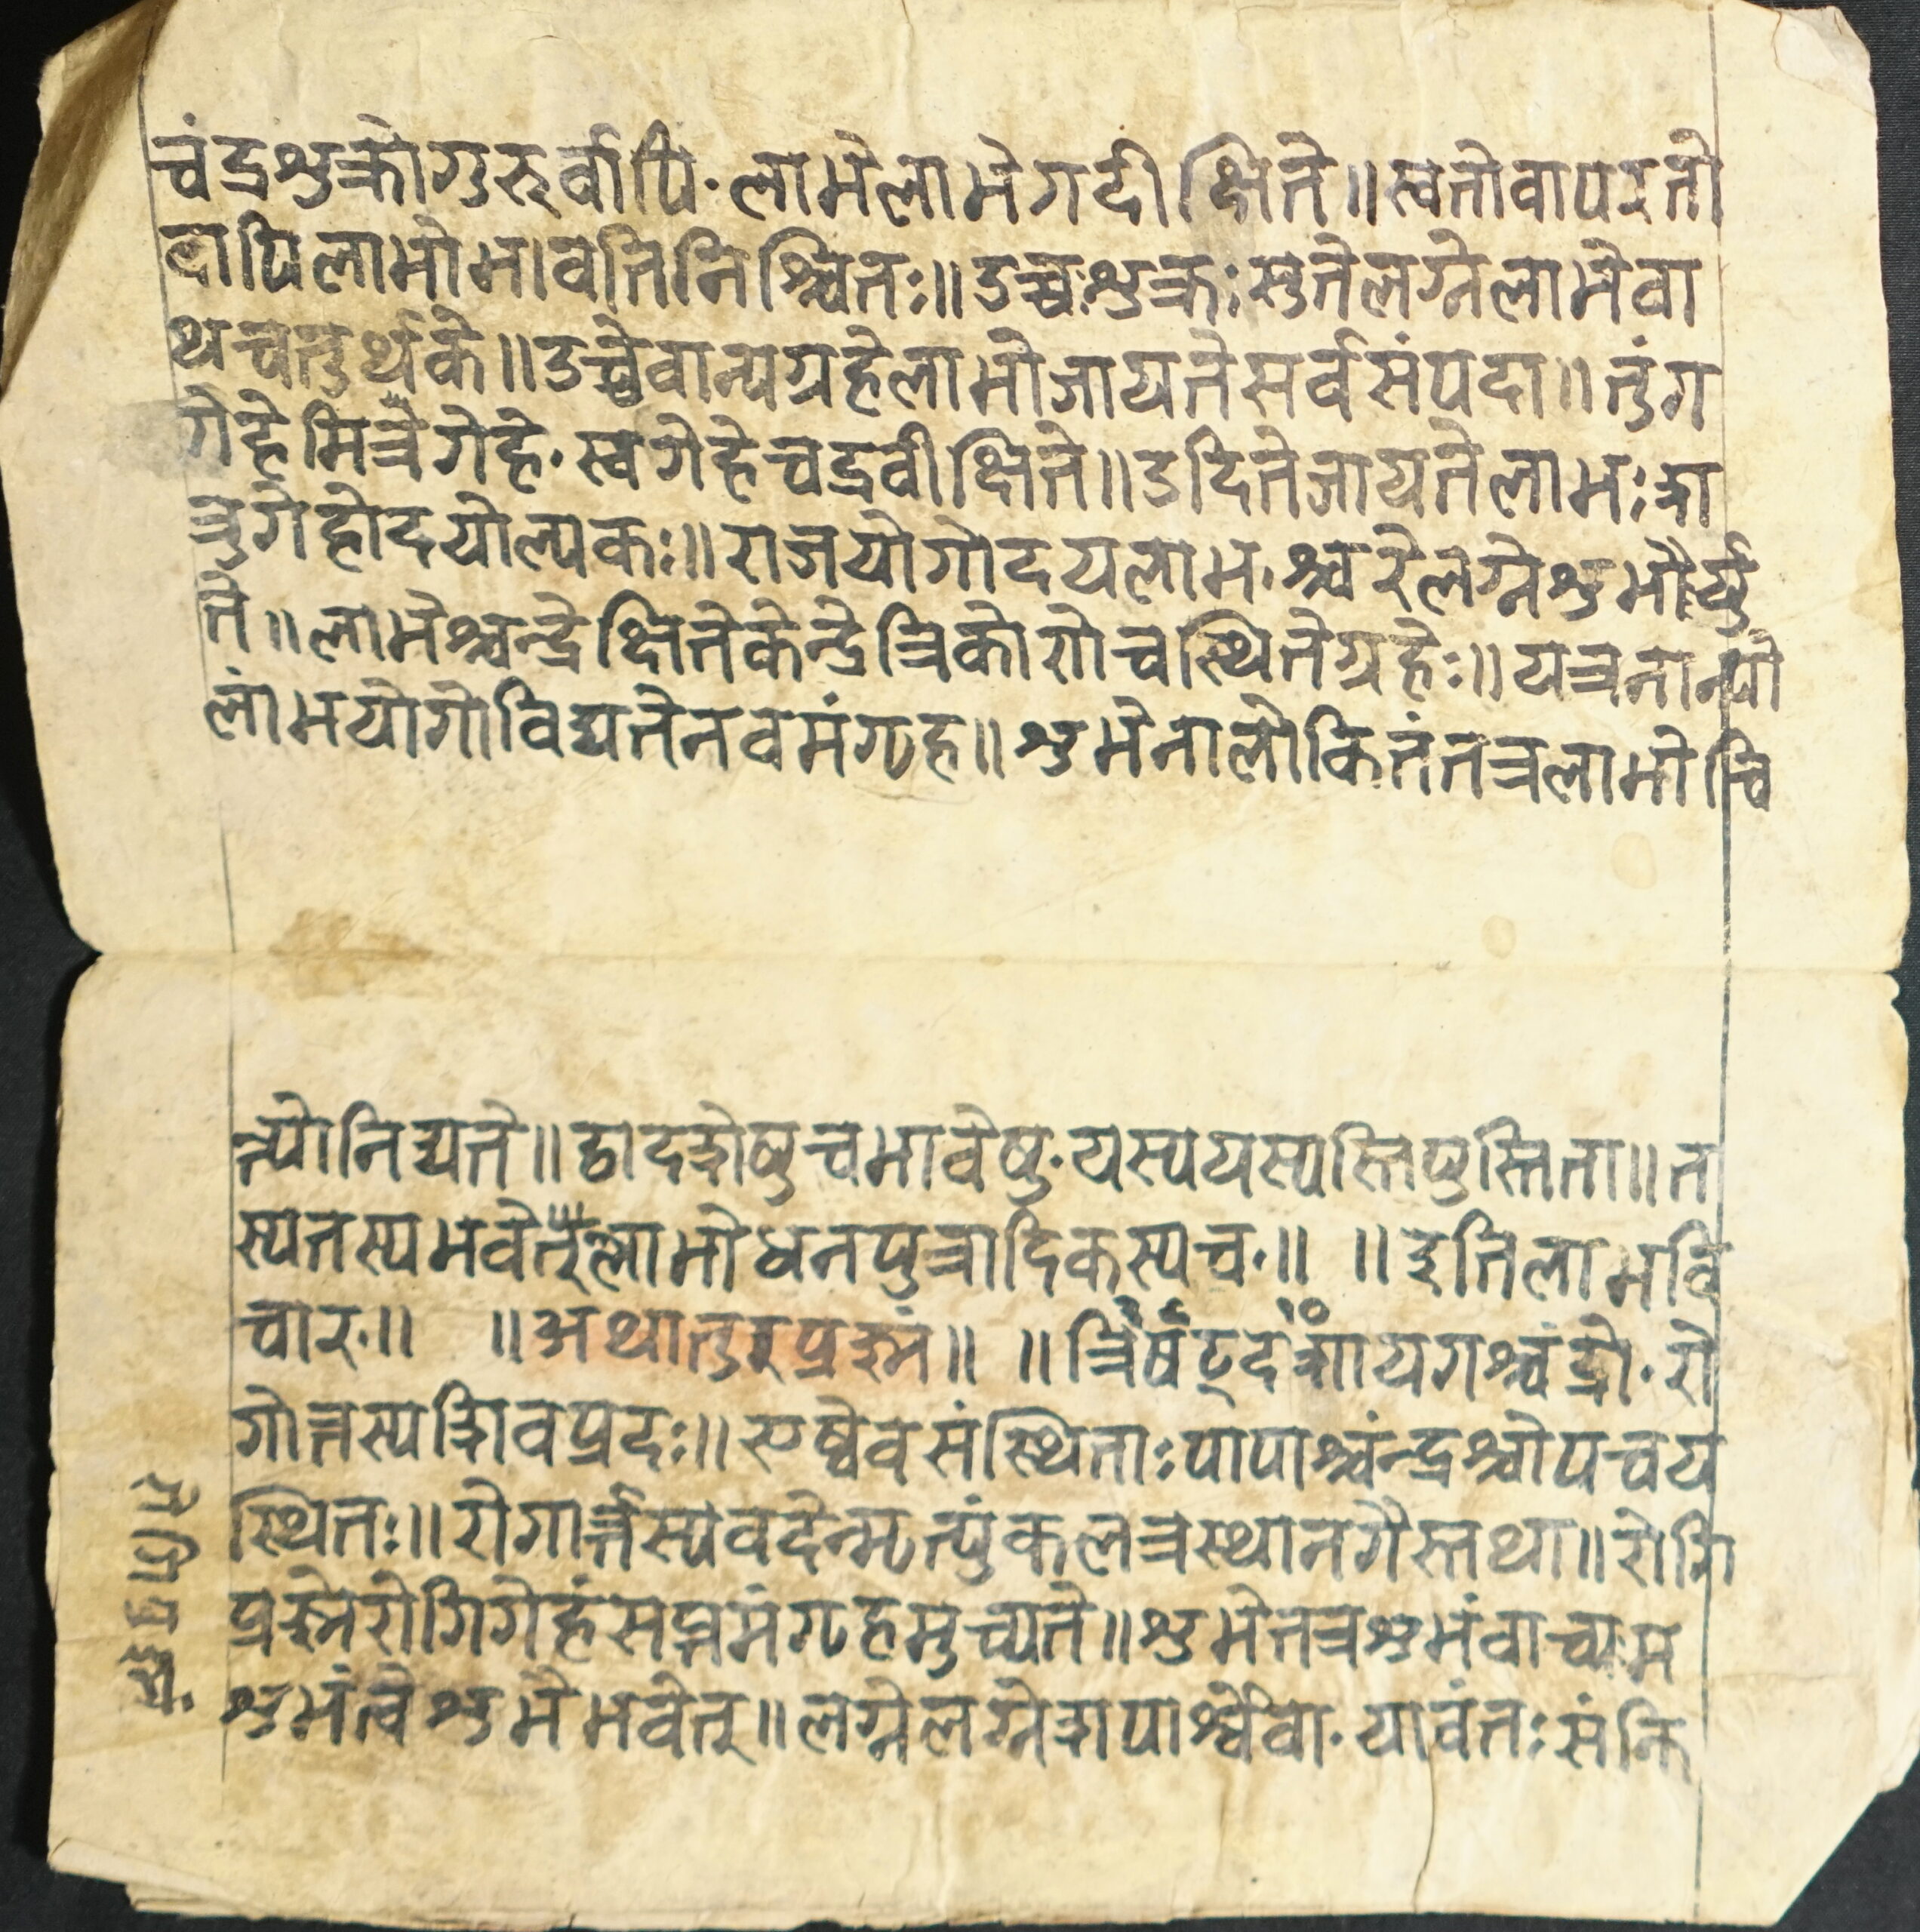 चंद्रशुक्रोगुरुर्वापि·लाभेलाभेगदीक्षिते॥स्वतोवापरतो
वापिलाभोभावतिनिश्चितः॥उच्चःशुक्रःसुतेलग्नेलाभेवा
थचतुर्थके॥उच्चेवान्यग्रहेलाभोजायतेसर्वसंपदा॥तुंग
गेहेमित्रगेहे·स्वगेहेचद्रवीक्षिते॥उदितेजायतेलाभःशा
त्रुगेहोदयोल्पकः॥राजयोगोदयलाभ·श्चरेलग्नेशुभैर्यु
ते॥लाभेश्चन्द्रेक्षितेकेन्द्रेत्रिकोणेचस्थितेग्रहेः॥यत्रनान्यो
लाभयोगोविद्यतेनवमंगृह॥शुभेनालोकितंतत्रलाभोचि
न्त्योनिद्यते॥द्वादशेषुचभावेषु·यस्ययस्यस्तिपुस्तिता॥त
स्यतस्यभवेत्लाभोधनपुत्रादिकस्यच·॥ ॥इतिलाभवि
चार·॥ ॥अथातुरप्रश्नं॥ ॥त्रिषट्दशायगश्चंद्रो·रो
गोत्तस्यशिवप्रदः॥एष्वेवसंस्थिताःपापाश्चंन्द्रश्चोपचय
स्थितः॥रोगार्त्तस्यवदेन्मृत्युंकलत्रस्थानगैस्तथा॥रोगि
प्रश्नेरोगिगेहंसप्तमंगृहमुच्यते॥शुभेतत्रशुभंवाच्य·म
शुभंत्वेशुभेभवेत्॥लग्नेलग्नेशपार्श्वेवा·यावंतःसंति